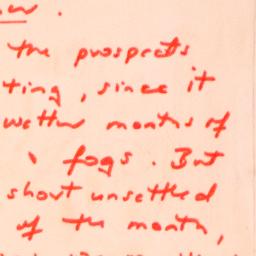 the prospects
ting, since it
wetter months of
fogs. But
short unsettled
of the month,